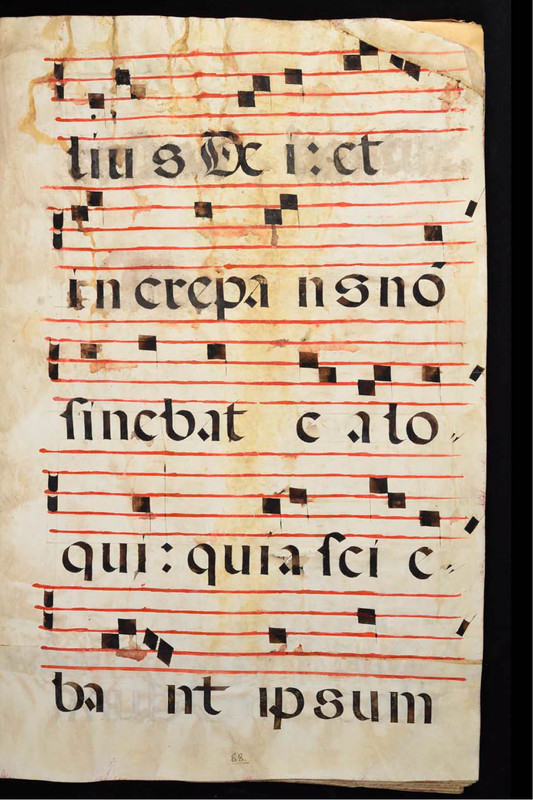 lius De i: et
increpa nsnō
sinebat ea lo-
qui: quia sci e-
ba nt ipsum
88.